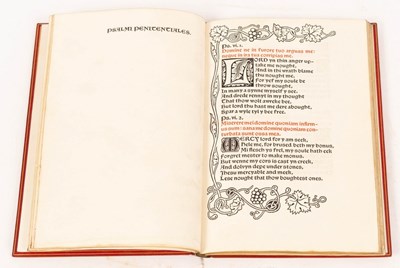 PSALMI PENITENTIALES.
Ps. vi. 1.
Domine ne in furore tuo arguas me:
neque in ira tua corripias me.
LORD yn this anger up-
take me nought,
And in thi wrath blame
thu nought me,
For yef my soule be
thorow sought,
In many a synne myself y see.
And drede rennyt in my thought
That thow wolt awreke bee,
But lord thu hast me dere abought,
Spar a wyle tyl y bee Free.
Ps. vi. 2.
Miserere mei domine quoniam infirm-
us sum: sana me domine quoniam con-
turbata sunt ossa mea.
MERCY lord for y am seek,
Hele me, for brused beth my bonus,
Mi flesch ys frel, my soule hath eek
Forget mester to make monus.
But wenne my cors is cast ye creek,
And dentus don under stonus,
Thesu mercyable and meek,
Lese nought that thow boughtest ones.